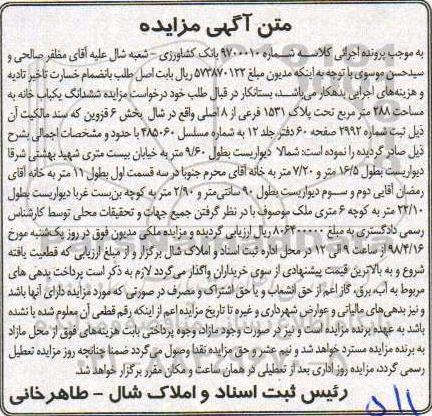 متن آگهی مزایده
به موجب پرونده اجرائی کلاسه شماره ۹۷۰۰۰۱۰ بانک کشاورزی - شعبه شال علیه آقای مظفر صالحی و
سیدحسن موسوی با توجه به اینکه مدیون مبلغ ۵۷۳۸۷۰۱۲۲ ریال بابت اصل طلب بانضمام خسارت تاخیر تادیه
و هزینه‌های اجرایی بدهکار می‌باشد، بستانکار در قبال طلب خود درخواست مزایده ششدانگ یکباب خانه به
مساحت ۲۸۸ متر مربع تحت پلاک ۱۵۳۱ فرعی از ۸ اصلی واقع در شال بخش ۶ قزوین که سند مالکیت آن
ذیل ثبت شماره ۲۹۹۲ صفحه ۶۰ دفتر جلد ۱۲ به شماره مسلسل ۴۸۵۰۶۰ با حدود و مشخصات اجمالی بشرح
ذیل صادر گردیده را نموده است: شمالا دیواریست بطول ۹/۶۰ متر به خیابان بیست متری شهید بهشتی شرقا
دیواریست بطول ۱۶/۵ متر و ۷/۲۰ متر به خانه آقای محرم جنوبا در سه قسمت اول بطول ۱۱ متر به خانه آقای
رمضان آقایی دوم و سوم دیواریست بطول ۹۰ سانتی‌متر و ۲/۹۰ متر به کوچه بن‌بست غربا دیواریست بطول
۲۲/۱۰ متر به کوچه ۶ متری ملک موصوف با در نظر گرفتن جمیع جهات و تحقیقات محلی توسط کارشناس
رسمی دادگستری به مبلغ ۸۰۶۴۰۰۰۰۰ ریال ارزیابی گردیده و مزایده ملکی مدیون فوق در روز یک‌شنبه مورخ
۹۸/۴/۱۶ از ساعت ۹ الی ۱۲ در محل اداره ثبت اسناد و املاک شال برگزار و از مبلغ ارزیابی که قطعیت یافته
شروع و به بالاترین قیمت پیشنهادی از سوی خریداران واگذار می‌گردد لازم به ذکر است پرداخت بدهی های
مربوط به آب، برق، گاز اعم از حق انشعاب و یا حق اشتراک و مصرف در صورتی که مورد مزایده دارای آنها باشد
و نیز بدهی‌های مالیاتی و عوارض شهرداری و غیره تا تاریخ مزایده اعم از اینکه رقم قطعی آن معلوم شده یا نشده
باشد به عهده برنده مزایده است و نیز در صورت وجود مازاد، وجوه پرداختی بابت هزینه‌های فوق از محل مازاد
به برنده مزایده مسترد خواهد شد و نیم عشر و حق مزایده نقدا وصول می‌گردد ضمنا چنانچه روز مزایده تعطیل
رسمی گردد، مزایده روز اداری بعد از تعطیلی در همان ساعت و مکان مقرر برگزار خواهد شد.
رئیس ثبت اسناد و املاک شال - طاهرخانی